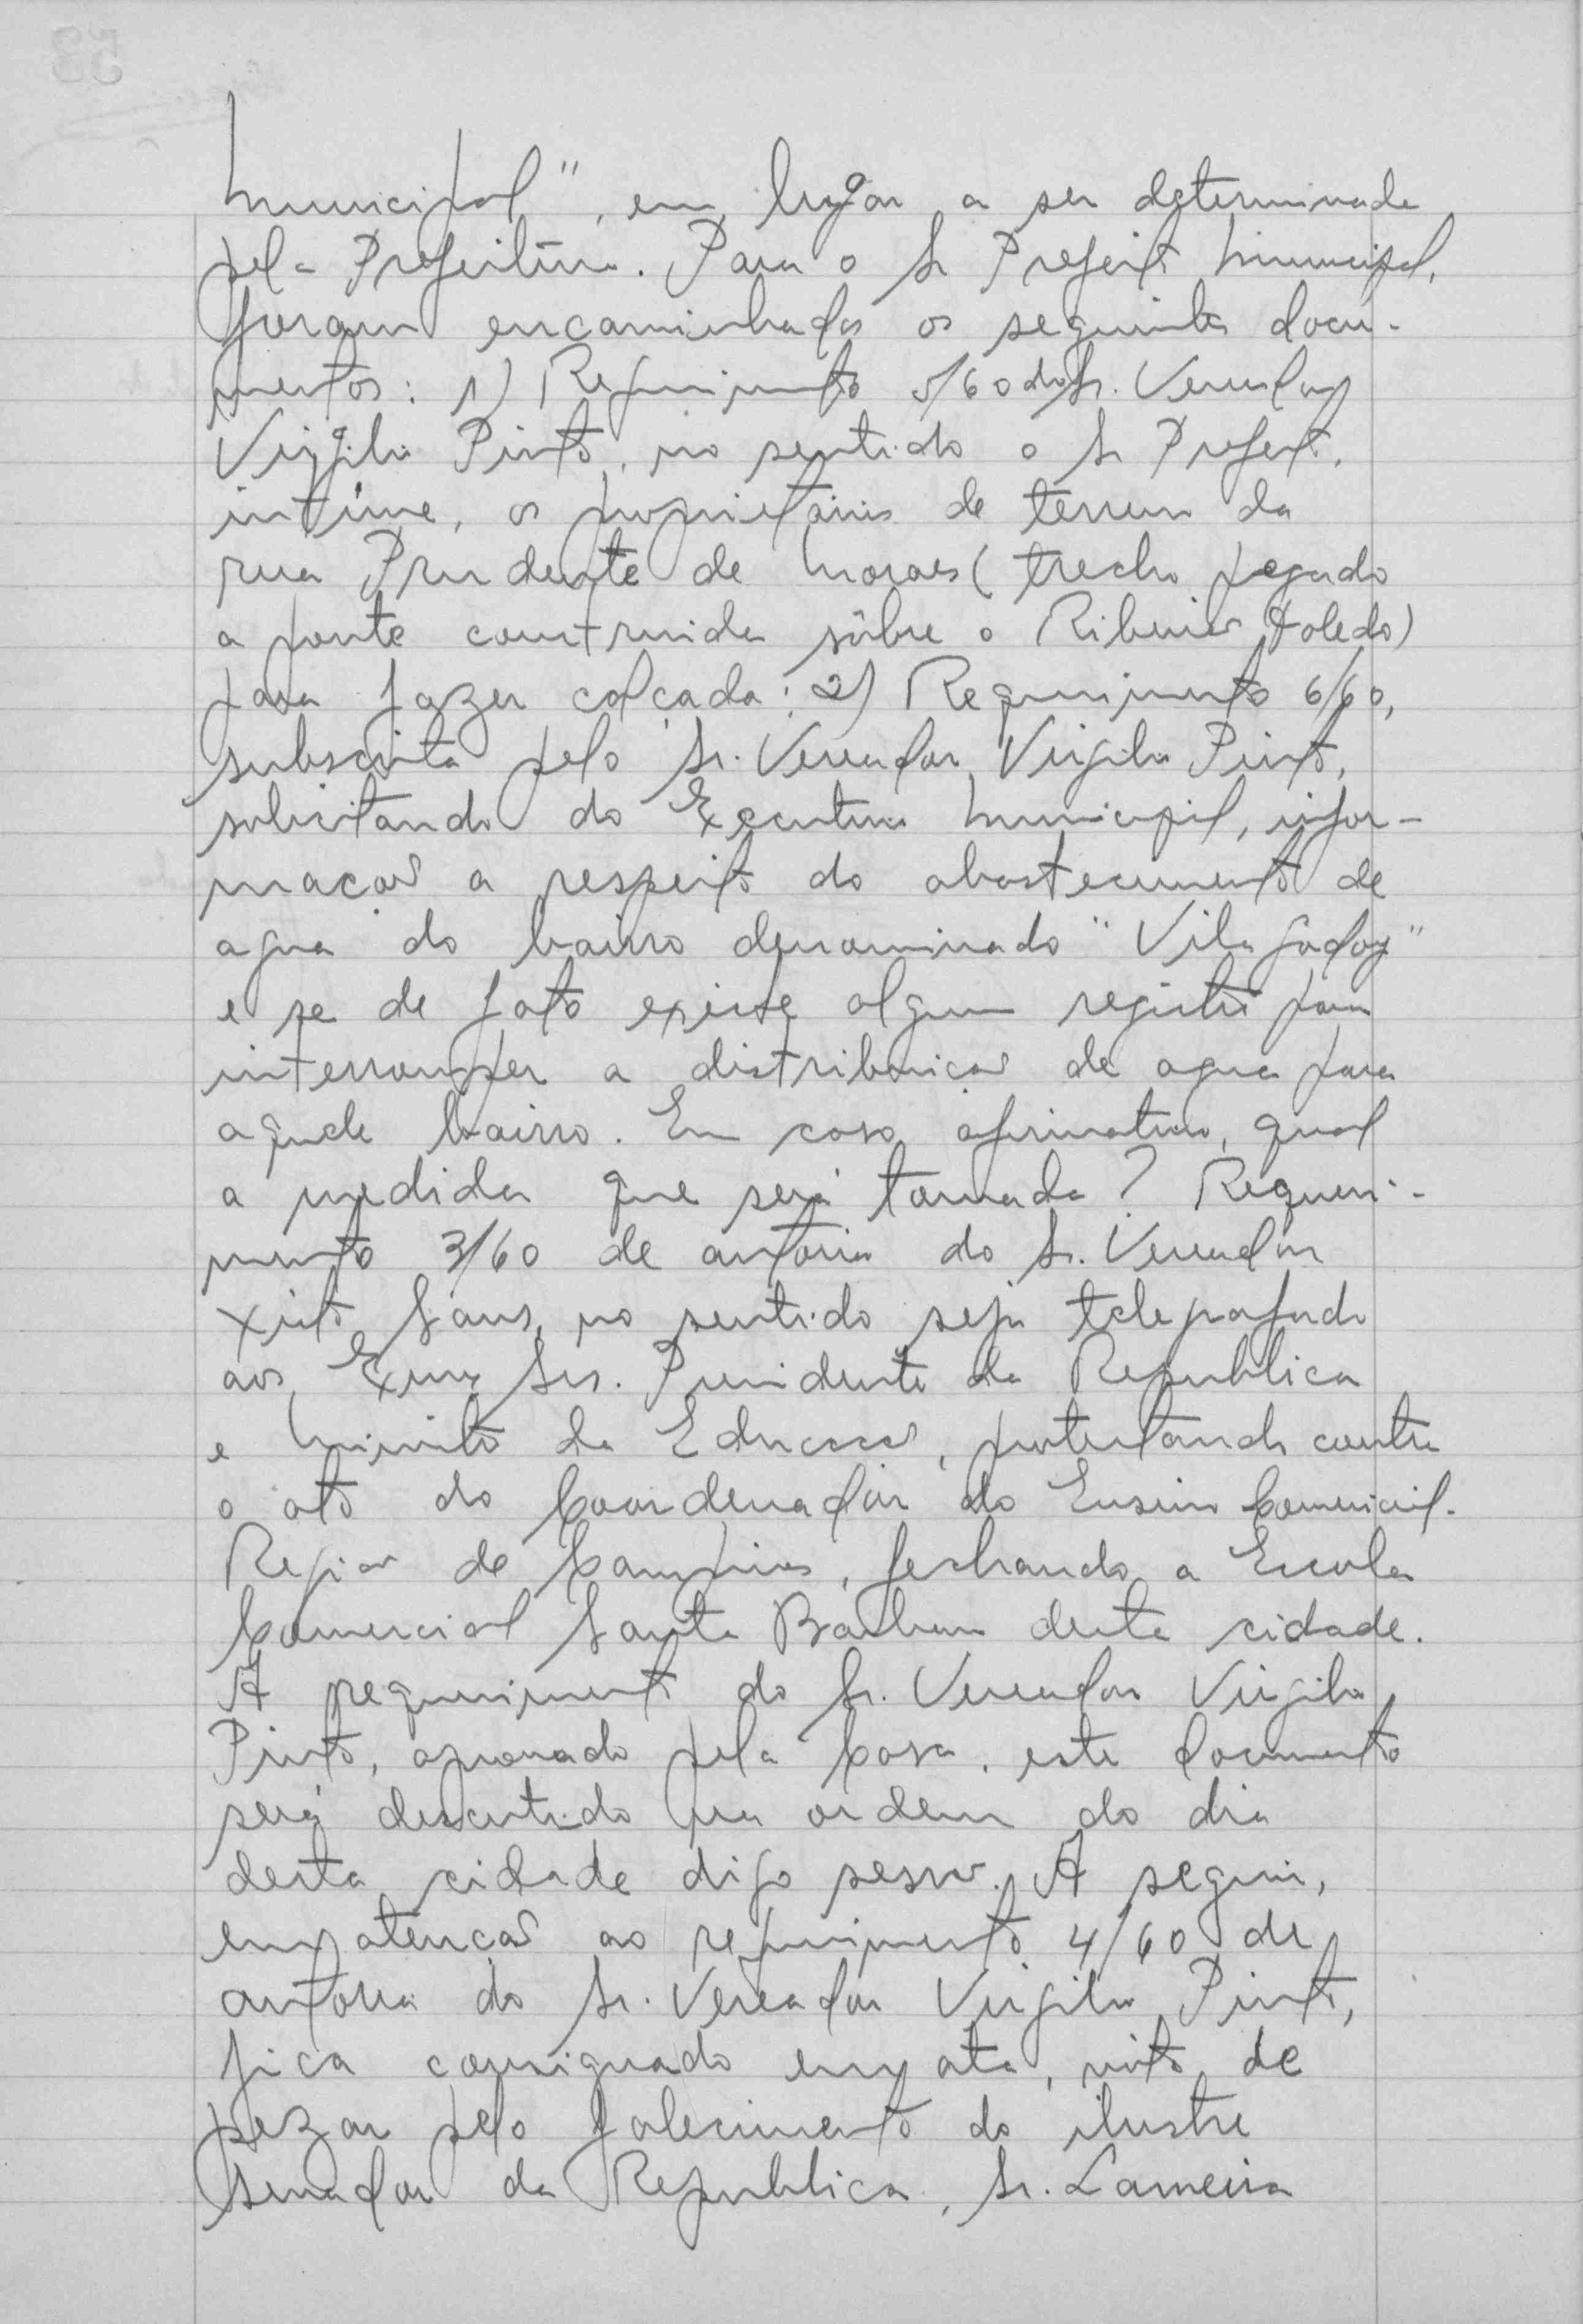 Municipal", em lugar a ser determinado
pela Prefeitura. Para o Sr Prefeito Municipal,
foram encaminhados os seguintes docu-
mentos: 1) Requerimento 5/60 do Sr. Vereador
Virgilio Pinto, no sentido o Sr Prefeito,
intime, os proprietários de terreno da
rua Prudente de Moraes (trecho pegado
a ponte construida sôbre o Ribeirão Toledo)
para fazer calçada; 2) Requerimento 6/60,
subscrita pelo Sr. Vereador Virgilio Pinto,
solicitando do Executivo Municipal, infor-
maçao a respeito do abastecimento de
agua do bairro denominado "Vila Godoy"
e se de fato existe algum registro para
interromper a distribuiçao de agua para
aquele bairro. Em caso afirmativo, qual
a medida que será tomada? Requeri-
mento 3/60 de autoria do Sr. Vereador
Xisto Sans, no sentido seja telegrafado
aos Exmos Srs. Presidente da Republica
e Ministro da Educaçao, protestando contra
o ato do Coordenador do Ensino Comercial.
Regiao de Campinas, fechando a Escola
Comercial Santa Barbara desta cidade.
A requerimento do Sr. Vereador Virgilio
Pinto, aprovado pela Casa, este documento
será discutido na ordem do dia
desta cidade digo sessao. A seguir,
em atençao ao requerimento 4/60 de
autoria do Sr. Vereador Virgilio Pinto,
fica consignado em ata, voto de
pezar pelo falecimento do ilustre
senador da Republica, Sr. Lameira